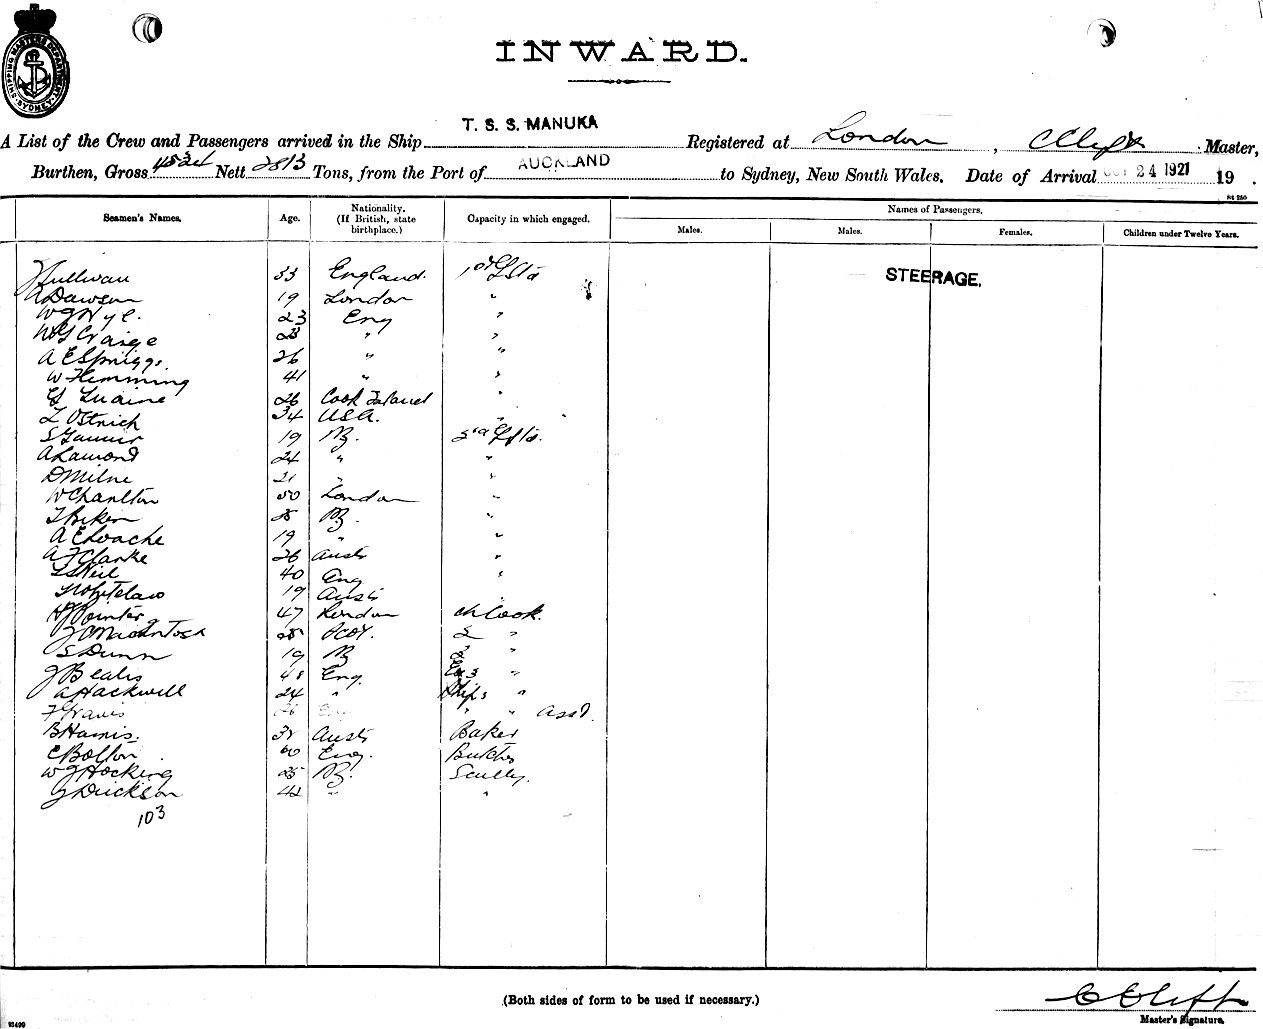 SHIPPING MASTERS DEPARTMENT SYDNEY
INWARD.
A List of the Crew and Passengers arrived in the Ship T. S. S. MANUKA Registered at London, Master,
Burthen, Gross 4534 Nett 2813 Tons, from the Port of AUCKLAND to Sydney, New South Wales. Date of Arrival OCT 24 1921 19 .
Seamen's Names. Age. Nationality. (If British, state birthplace.) Capacity in which engaged. Names of Passengers.
Males. Males. Females. Children under Twelve Years.
STEERAGE.
J Sullivan 33 England.
A Dawson 19 London "
W J Nye. 23 Eng "
Craige 28 " "
A E Spriggs. 26 " "
W Flemming 41 " "
26 Cook Island "
L Ostrich 34 USA. "
S 19 NZ.
A Lamond 24 " "
D Milne 21 " "
W Charlton 50 London "
28 NZ. "
A E Loache 19 " "
A F Clarke 26 Aust "
Neil 40 Eng "
Whitelaw 19 Aust
H J Pointer 47 London Ch Cook.
J C MacIntosh 28 Scot. 2 "
S Dunn 19 NZ 3 "
J Bealis 48 Eng. "
A Hackwill 24 " Ships "
F Travis 26 Eng " " Asst.
B Harris. 38 Aust Baker
C Bolton 60 Eng. Butcher
W J Hocking 25 NZ. Scully.
J Dickson 42 " "
103
(Both sides of form to be used if necessary.)
C Cliff
Master's Signature.